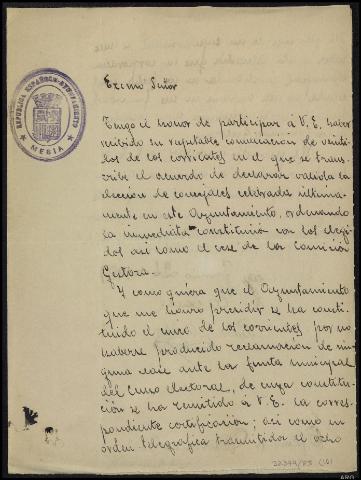 REPUBLICA ESPAÑOLA-AYUNTAMIENTO
MESIA
Excmo Señor
Tengo el honor de participar á V. E. haber
recibido su respetable comunicación de
de los corrientes en el que se trans-
cribe el acuerdo de declarar valida la
elección de concejales celebrada ultima-
mente en este Ayuntamiento, ordenando
la inmediata constitución con los elegi-
dos asi como el cese de la Comisión
Gestora.
Y como quiera que el Ayuntamiento
que me honro presidir se ha consti-
tuido el once de los corrientes por no
haberse producido reclamación de nin-
guna clase ante la Junta municipal
del Censo electoral, de cuya constitu-
ción se ha remitido á V. E. la corres-
pondiente certificación; asi como en
orden telegrafica transmitida el ocho